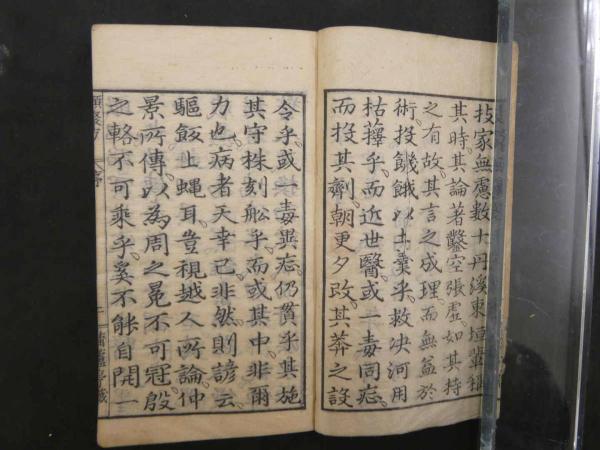 技家無慮數十丹溪東垣輩稱
其時其論著鑿空張虛如其持
之有故其言之成理而無益於
術投饑餓以土羹乎救决河用
枯蘀乎而近世醫或一毒同忘
而投其劑朝更夕改其莽之設
令乎或一毒異忘仍貫乎其施
其守株刻舩乎而或其中非爾
力也病者天幸已非然則諺云
驅飯上蠅耳豈視越人所論仲
景所傳以為周之冕不可冠殷
之輅不可乘乎奚不能自開一